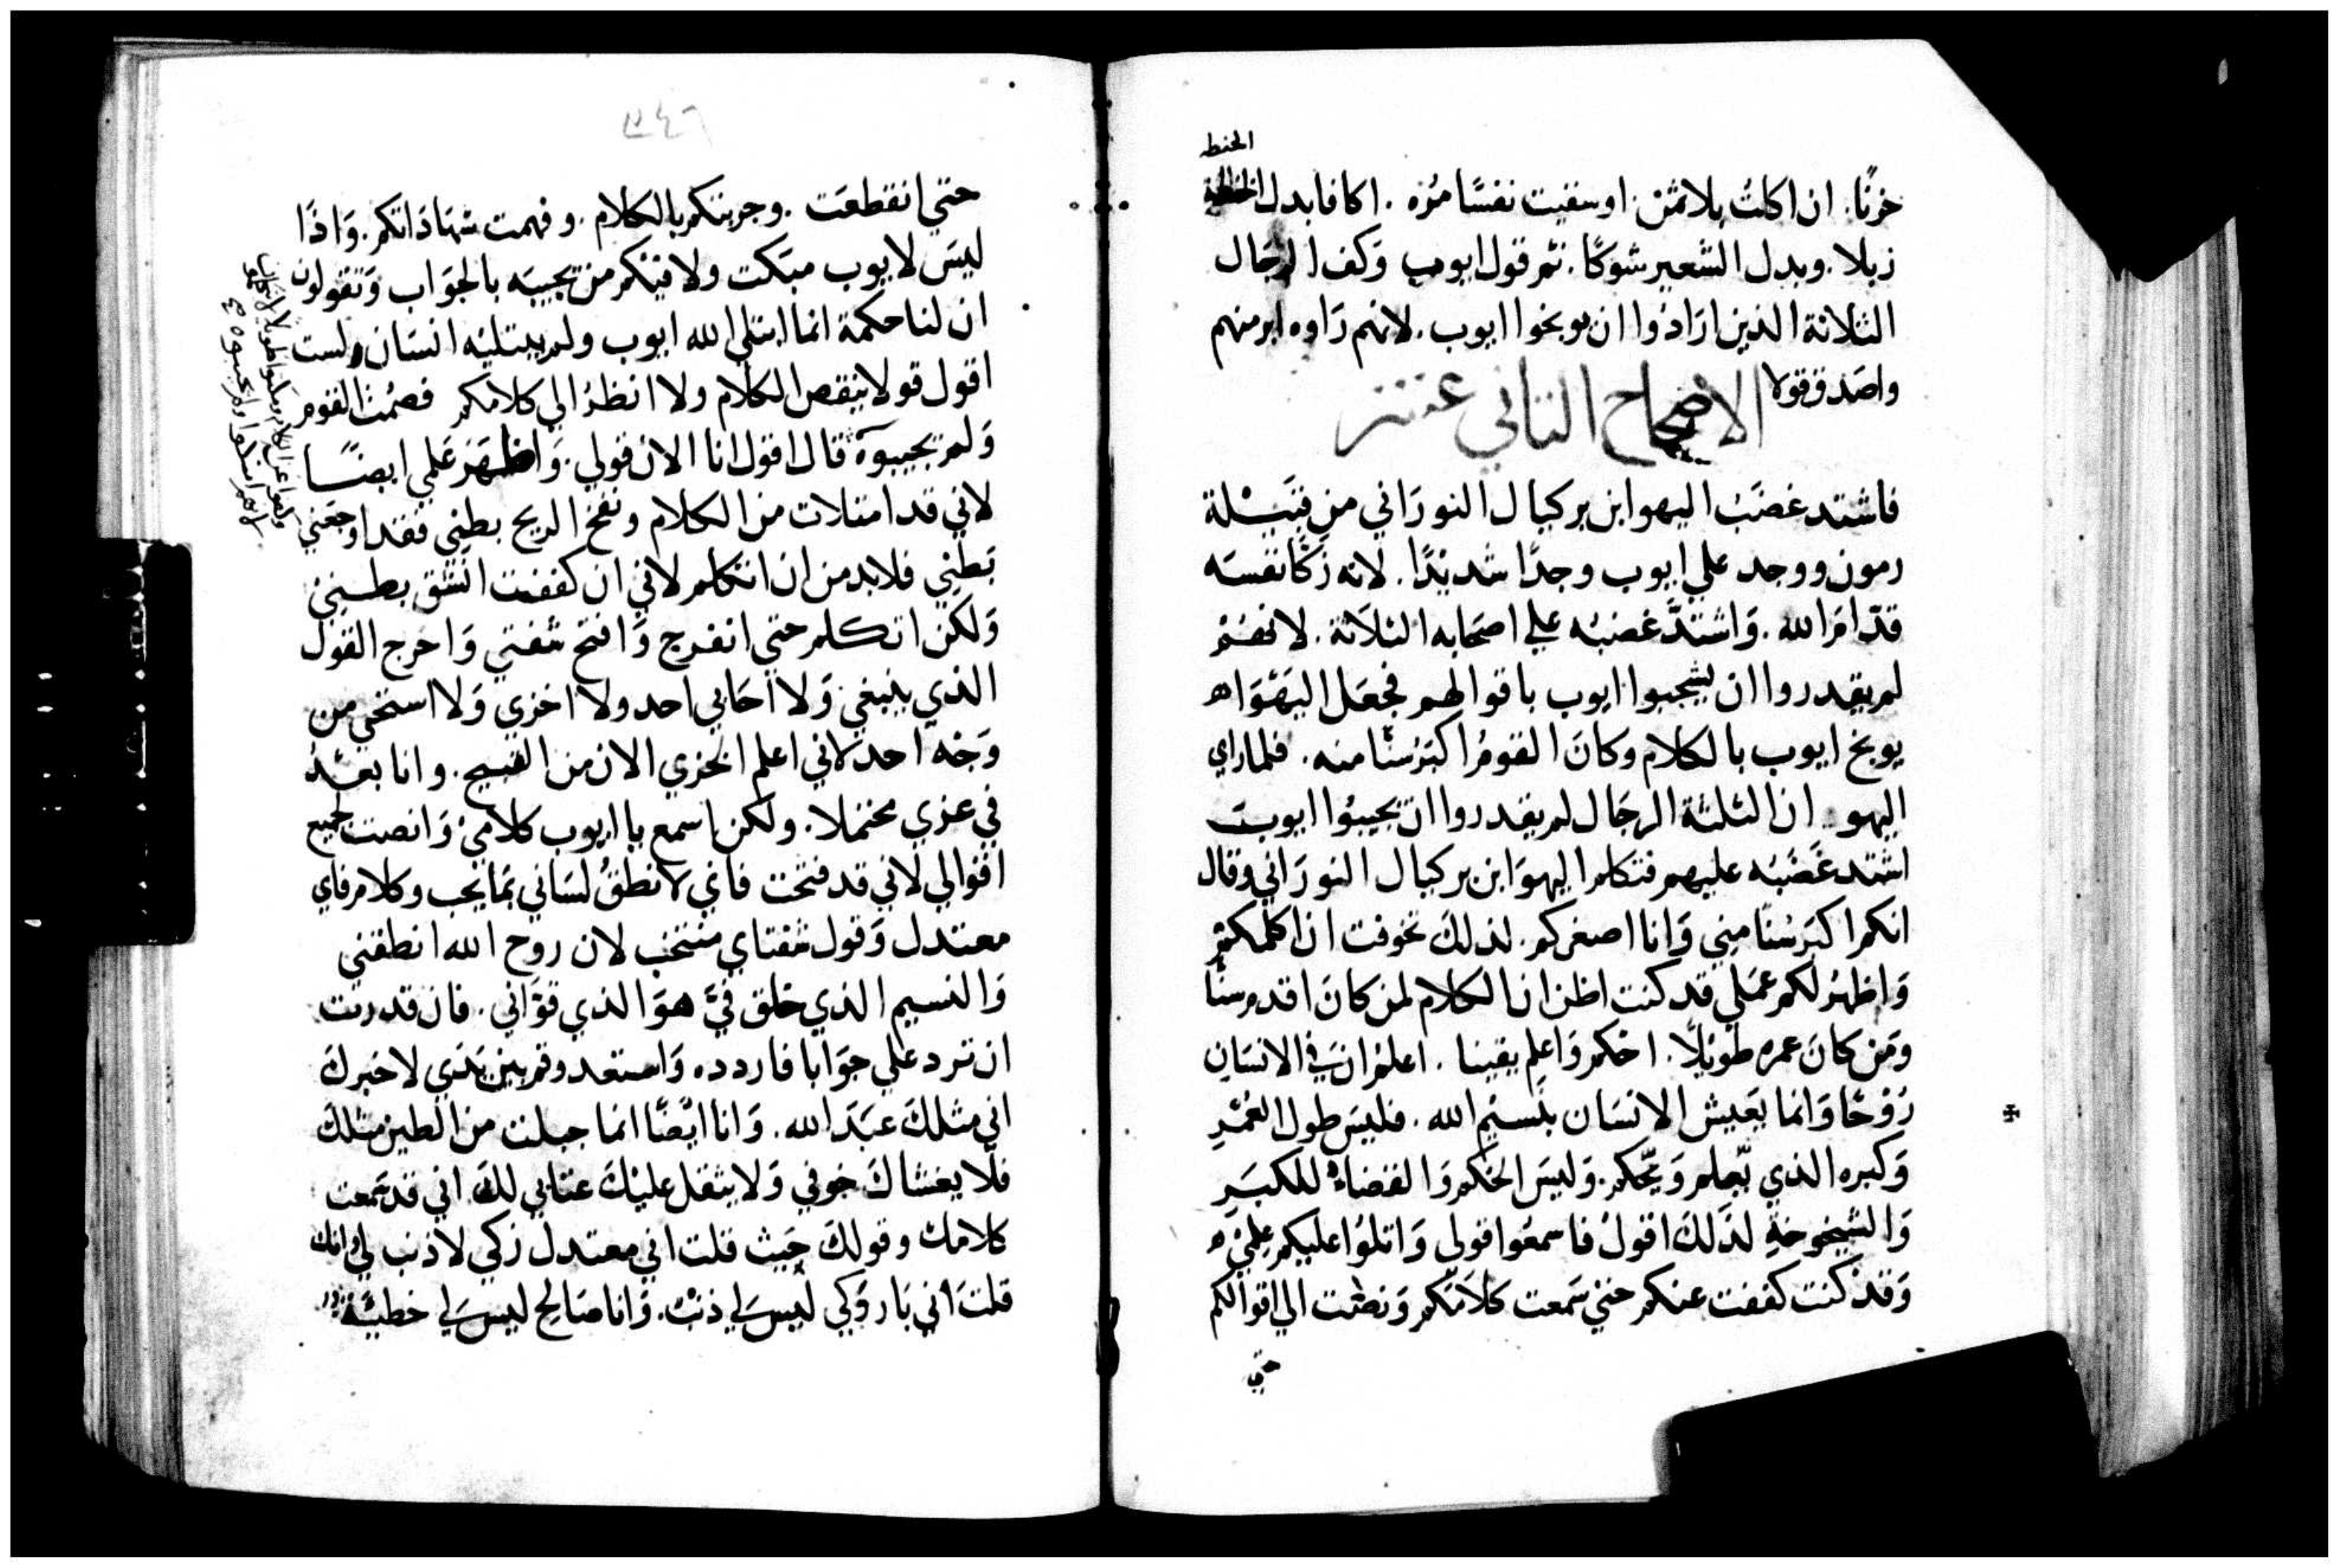 الحنطه
حزنًا. ان اكلتُ بلا ثمن. او سقيت نفسًا مُرّه. اكافا بدل الحنطة
زبلا. وبدل الشعير شوكًا. تم قول ايوب وَكف الرجَال
الثلاثة الذين ارَادُوا ان يوبخوا ايوب. لانهم رَاوه ابر منهم
واصَدق قولا الاصحاح الثاني عشر
فاشتد غضَبُ اليهو ابن بركيال النورَاني من قبَيْلة
رمون ووجد علي ايوب وجدًا شديْدًا. لانه زكَّا نفسَه
قدّام الله. وَاشتدَّ غضبُه علي اصحَابه الثلاَثة. لانهُمْ
لم يقدروا ان يجيبوا ايوب باقوالهم فجعَل اليَهوَا
يوبخ ايوب بالكلام وَكانَ القومُ اكبَر سُنًا منه. فلما راي
اليهو ان الثلثة الرجَال لم يقدروا ان يجيبُوا ايوبَ
اشتد غَضبُه عليهم فتكلم اليهوَ ابن بركيال النورَاني وقال
انكم اكبَر سُنًا مني وَانا اصغركم. لذلكَ تخوفت ان اكلمكمْ
وَاظهرُ لكم عَملي قد كنت اظن ان الكلام لمن كانَ اقدم سنًا
ومَن كانَ عمره طَويْلًا. احْكم وَاعلم يقينا. اعلمْ ان في الانسَان
رُوْحًا وَانما يَعَيش الانسَان بنَسيْم الله. فليسَ طول العُمْرِ
وَكبره الذي يّعلم وَيّحكم. وَليسَ الحُكم وَالقضاء للكبَرِ
وَالشيخوخةِ لذَلكَ اقولُ فاسمعُوا قولي وَاتلوُا عليكم عِلمْي
وَقدْ كنت كففت عنكم حتيْ سَمعت كلاَمَكم وَنصَت الي اقوالكم
حتي
٣٤٦
حتي انقطعَت. وجربتكم بالكلام. وفهمت شهَادَاتكم. وَاذَا
ليسَ لايوب مبَكت ولا فيْكم من يجيبَه بالجوَاب وَتقولون
ان لنا حكمة انما ابتلي الله ايوب ولم يبتليْه انسَان ولست
اقول قولا ينقص الكلام ولا انظرُ الي كلامكم فصُمت القوم
وَلم يجيبوَه قال اقول انا الان قولي. وَاظهَر عَلمي ايضًا
لاني قد امتلات من الكلام ونفخ الريح بطنِي فقد اوجَعني
بَطنِي فلا بد من ان اتكلم لاني ان كففت انشق بطني
وَلكن اتكلم حتي انفرج وَافتح شفتي وَاخرج القول
الذي ينبغي وَلا احَابي احد ولا اخزي وَلا استحي من
وَجْه احد لاني اعلم الخزي الان من القبيح. وانا بعْدُ
في عزي محتملا. ولكن اسمع يا ايوب كلامي وَانصت لجميع
اقوالي لاني قد فتحت فاي لانطقُ لسَاني بَما يجب وكلام فاي
معتدل وَقول شفتاي منتخب لان روح الله انطقني
وَالنسيم الذي خلق فيَّ هوَ الذي قوَّاني. فان قدرت
ان ترد علي جوَابا فاردده وَاستعد وقم بين يَدَي لاخبركَ
اني مثلكَ عبَدَ الله. وَانا ايْضًا انما جبلت من الطين مثلكَ
فلا يغشاكَ خوفي وَلا يثقل عليْكَ عتابي لكَ اني قد سَمعت
كلامك وقولكَ حَيث قلت اني معتدل زكي لا ذنب لي وانك
قلتَ اني بَار وَزكي ليسَ لي ذنبٌ. وَانا صَالح ليسَ لي خطيَئة